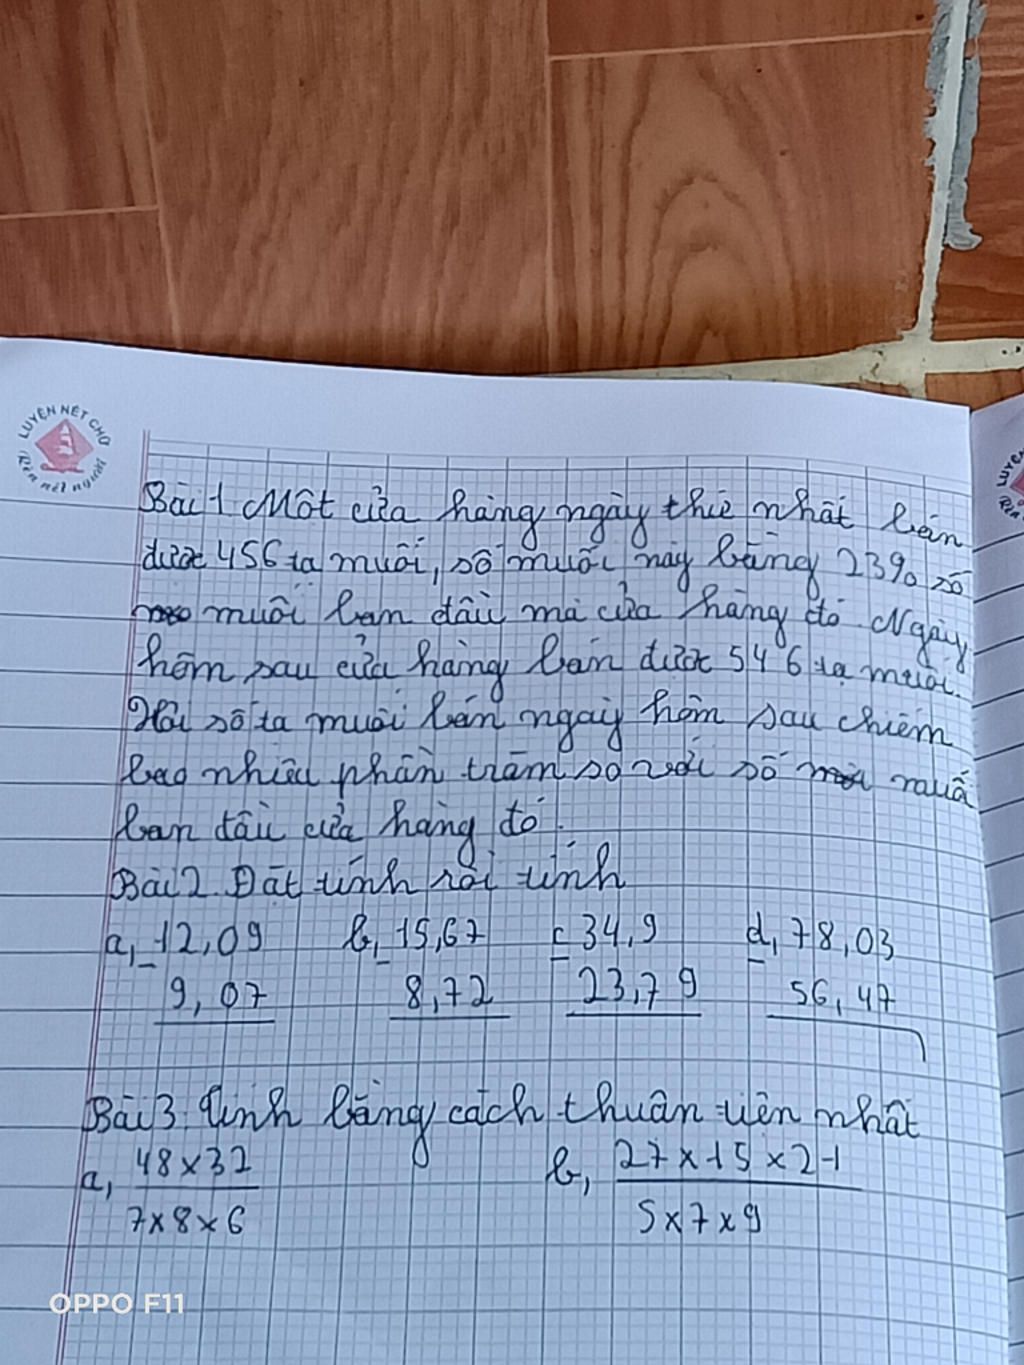 LUYỆN NÉT CHỮ
Rèn nết người
Bài 1. Một cửa hàng ngày thứ nhất bán
được 456 tạ muối, số muối này bằng 23% số
muối ban đầu mà cửa hàng đó. Ngày
hôm sau cửa hàng bán được 546 tạ muối.
Hỏi số tạ muối bán ngày hôm sau chiếm
bao nhiêu phần trăm so với số muối
ban đầu cửa hàng đó.
Bài 2. Đặt tính rồi tính
a, 12,09 b, 15,67 c 34,9 d, 78,03
- - - -
9,07 8,72 23,79 56,47
Bài 3. Tính bằng cách thuận tiện nhất
a, 48 x 32 b, 27 x 15 x 21
7 x 8 x 6 5 x 7 x 9
OPPO F11